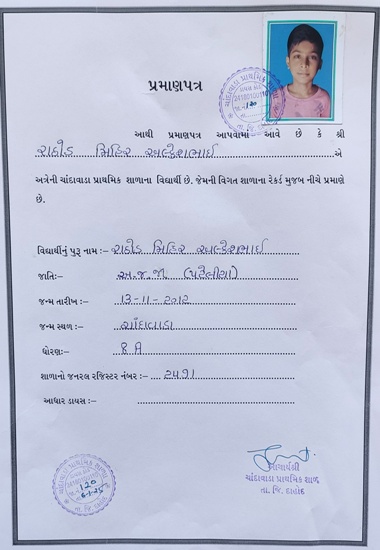 પ્રમાણપત્ર
આથી પ્રમાણપત્ર આપવામાં આવે છે કે શ્રી
રાઠોડ મિહિર અલ્કેશભાઈ એ
અત્રેની ચાંદાવાડા પ્રાથમિક શાળાના વિદ્યાર્થી છે. જેમની વિગત શાળાના રેકર્ડ મુજબ નીચે પ્રમાણે
છે.
વિદ્યાર્થીનું પુરૂ નામ :- રાઠોડ મિહિર અલ્કેશભાઈ
જાતિ:- અ.જ.જા. (પટેલીયા)
જન્મ તારીખ :- 13-11-2012
જન્મ સ્થળ :- ચાંદાવાડા
ધોરણ:- 8 A
શાળાનો જનરલ રજિસ્ટર નંબર :- ૨૫૧૧
આધાર ડાયસ :-
આચાર્યશ્રી
ચાંદાવાડા પ્રાથમિક શાળા
તા. જિ. દાહોદ